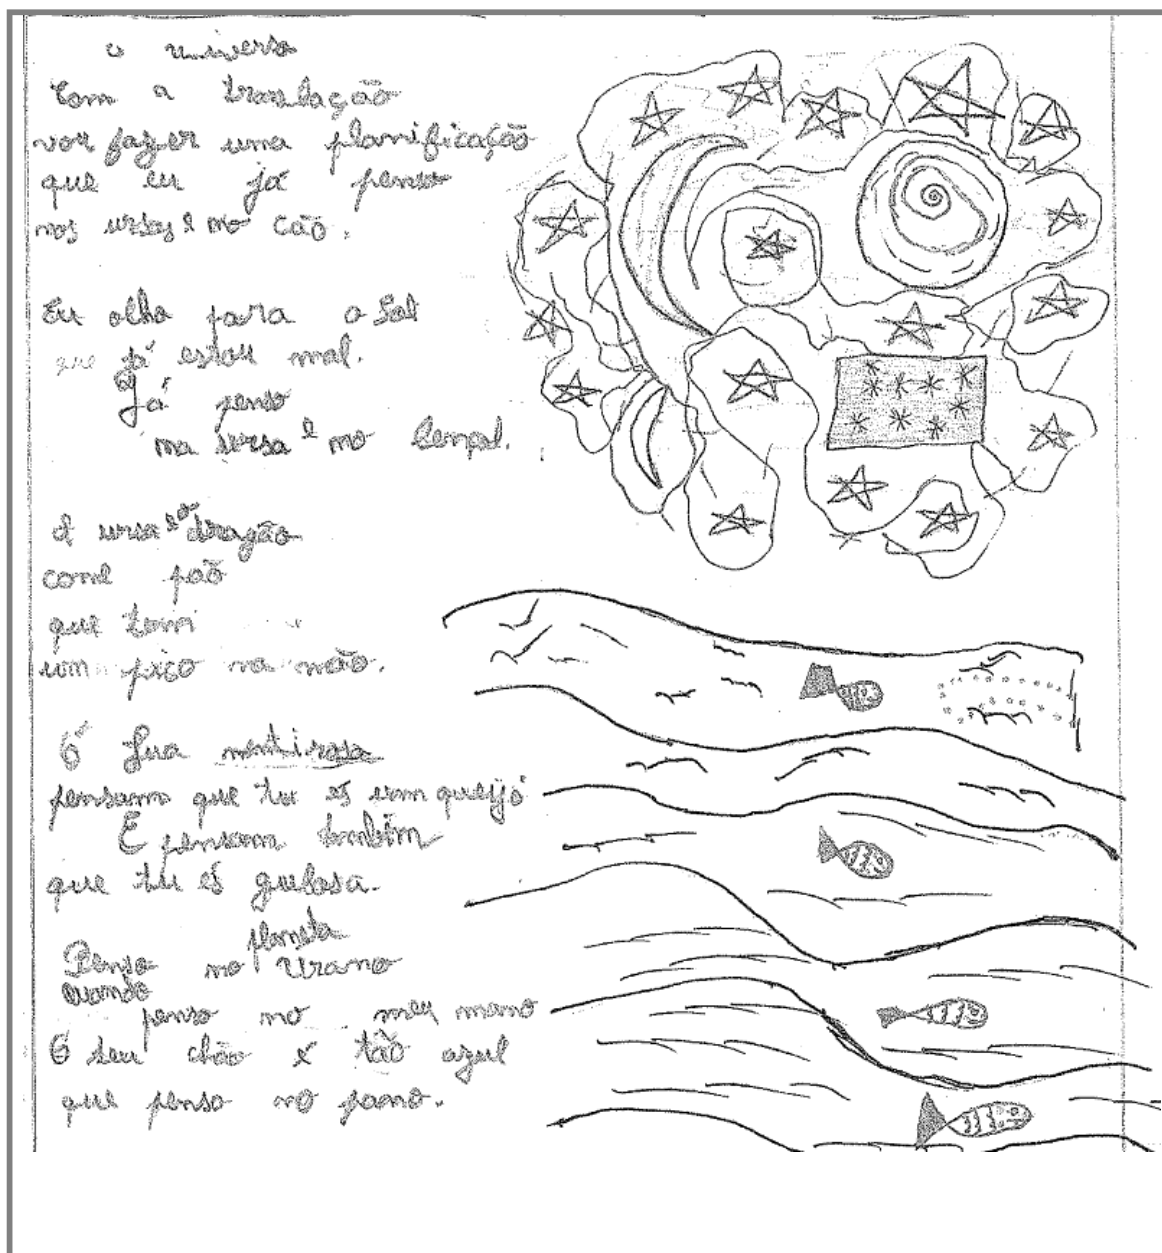 o universo
Com a translação
vou fazer uma planificação
que eu já penso
nos ursas e no cão.
Eu olho para o Sol
já estou mal.
Já penso
na ursa e no
A ursa e o dragão
come pão
que tem
um pico na mão.
Ó Lua mentirosa
pensam que tu és um queijo
E pensam também
que tu és gulosa.
Penso no planeta Urano
quando
penso no meu mano
O seu chão é tão azul
que penso no pano.